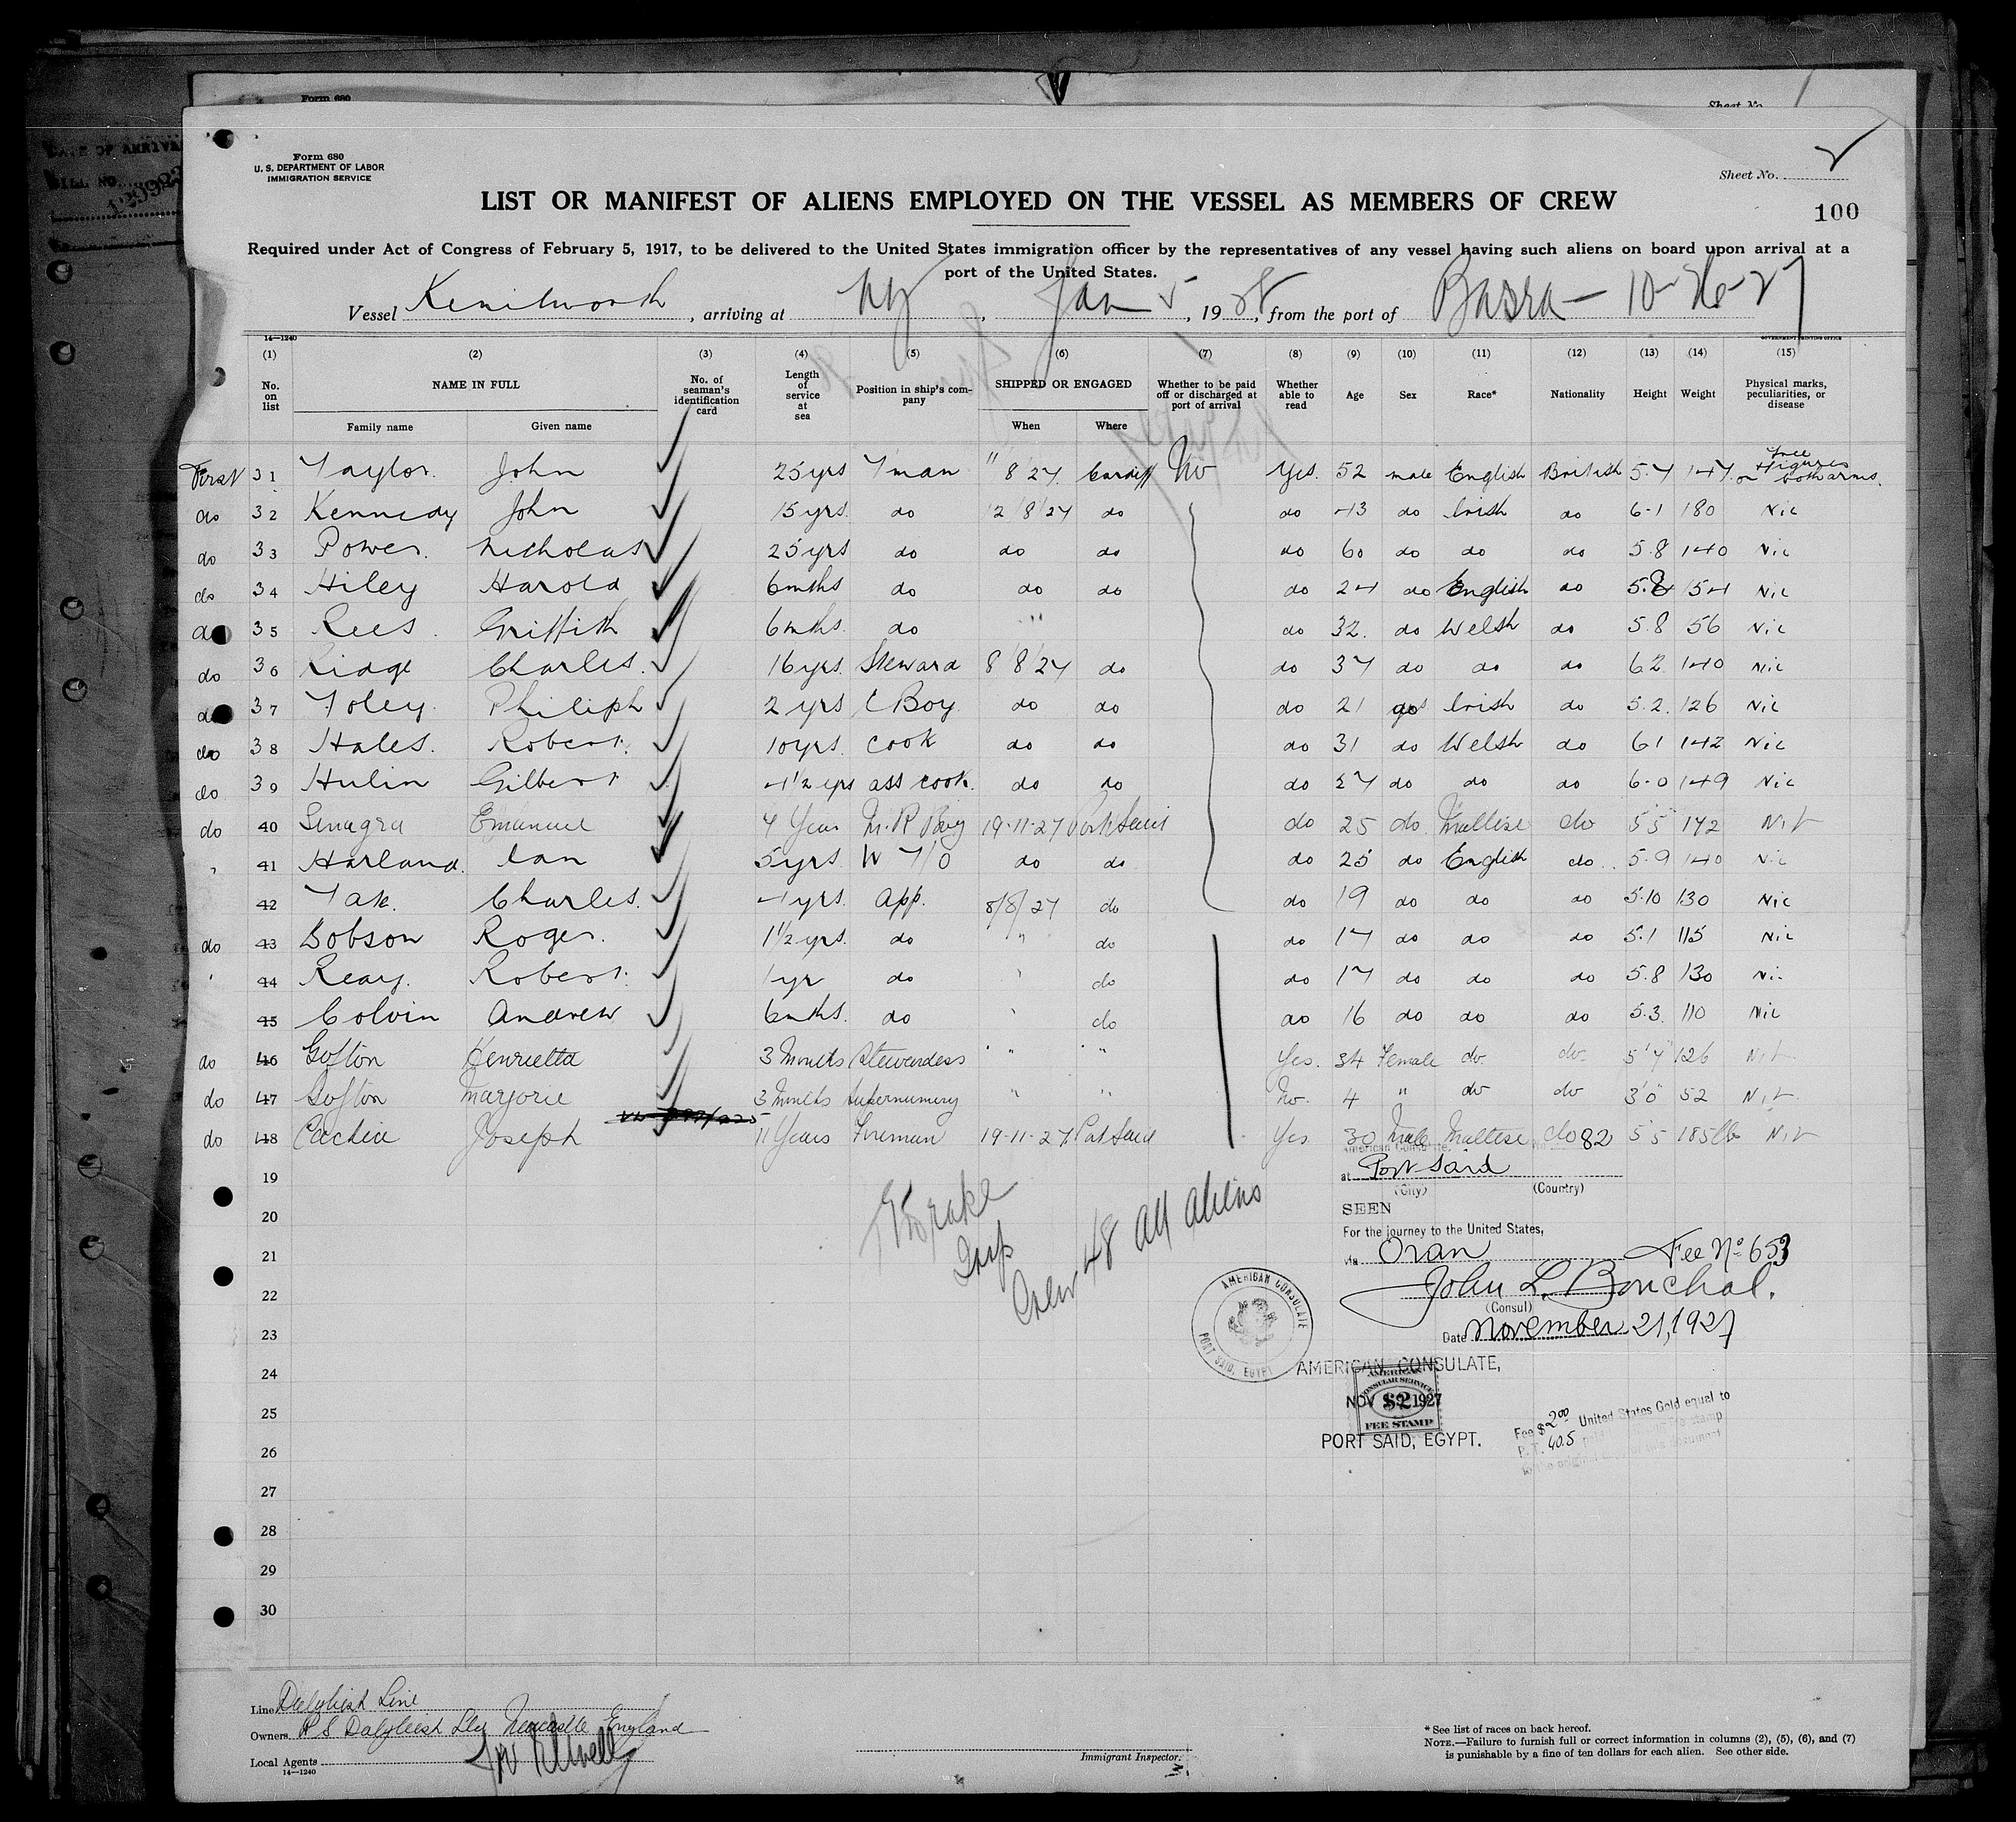 Form 680
Sheet No.
DATE OF ARRIVAL
Form 680
U. S. DEPARTMENT OF LABOR
IMMIGRATION SERVICE
Sheet No. 2
LIST OR MANIFEST OF ALIENS EMPLOYED ON THE VESSEL AS MEMBERS OF CREW
100
Required under Act of Congress of February 5, 1917, to be delivered to the United States immigration officer by the representatives of any vessel having such aliens on board upon arrival at a
port of the United States.
Vessel Kenilworth, arriving at NY, Jan 5, 1928, from the port of Basra - 10-26-27
14—1240
GOVERNMENT PRINTING OFFICE
(1) (2) (3) (4) (5) (6) (7) (8) (9) (10) (11) (12) (13) (14) (15)
No. on list NAME IN FULL No. of seaman's identification card Length of service at sea Position in ship's company SHIPPED OR ENGAGED Whether to be paid off or discharged at port of arrival Whether able to read Age Sex Race* Nationality Height Weight Physical marks, peculiarities, or disease
Family name Given name When Where
First 31 Taylor. John 25 yrs F'man " 8/27 Cardiff No Yes. 52 male English British 5.7 147 Tree Figures on both arms.
do 32 Kennedy John 15 yrs. do 12/8/27 do do 43 do Irish do 6-1 180 Nil
do 33 Power. Nicholas 25 yrs do do do do 60 do do do 5.8 140 Nil
do 34 Hiley Harold 6 mths do do do do 24 do English do 5.8 154 Nil
do 35 Rees. Griffith 6 mths. do " do 32. do Welsh do 5.8 56 Nil
do 36 Ridge Charles. 16 yrs. Steward 8/8/27 do do 37 do do do 6.2 140 Nil
do 37 Foley. Philiph 2 yrs C Boy. do do do 21 do Irish do 5.2. 126 Nil
do 38 Hales. Robert. 10 yrs. Cook do do do 31 do Welsh do 6.1 142 Nil
do 39 Hulin Gilbert 4 1/2 yrs ass cook. do do do 27 do do do 6.0 149 Nil
do 40 Sinagra Emanuel 4 Years M.R Boy 19-11-27 Port Said do 25 do Maltese do 5'5 142 Nil
" 41 Harland. Ian 5 yrs. W T/O do do do 25 do English do. 5.9 140 Nil
42 Tate. Charles. 4 yrs. App. 8/8/27 do do 19 do do do 5.10 130 Nil
do 43 Dobson Roger. 1 1/2 yrs. do " do do 17 do do do 5.1 115 Nil
' 44 Reay. Robert. 1 yr do ' do do 17 do do do 5.8 130 Nil
45 Colvin Andrew 6 mths. do ' do do 16 do do do 5.3. 110 Nil
do 46 Gofton Henrietta 3 Months Stewardess " " Yes. 34 Female do do 5'7" 126 Nil
do 47 Gofton Marjorie 3 Months Supernumery " " No. 4 " do do 3'0" 52 Nil
do 48 Joseph 11 Years Fireman 19-11-27 Port Said Yes 30 Male Maltese do 5'5 185lb Nil
American Consulate, No. 82
19
at Port Said
(City) (Country)
20
SEEN
For the journey to the United States,
21
via Oran Fee No 653
Insp
Crew 48 all aliens
22
John L. Bouchal.
(Consul)
23
Date November 21, 1927
AMERICAN CONSULATE
PORT SAID, EGYPT
24
AMERICAN CONSULATE,
AMERICAN
CONSULAR SERVICE
25
NOV $2 1927
FEE STAMP
Fee $2.00 United States Gold equal to
P. T. 40.5
PORT SAID, EGYPT.
26
27
28
29
30
Line Dalgliesh Line
Owners R S Dalgliesh Ltd Newcastle England
Local Agents
14—1240
Immigrant Inspector.
* See list of races on back hereof.
NOTE.—Failure to furnish full or correct information in columns (2), (5), (6), and (7)
is punishable by a fine of ten dollars for each alien. See other side.